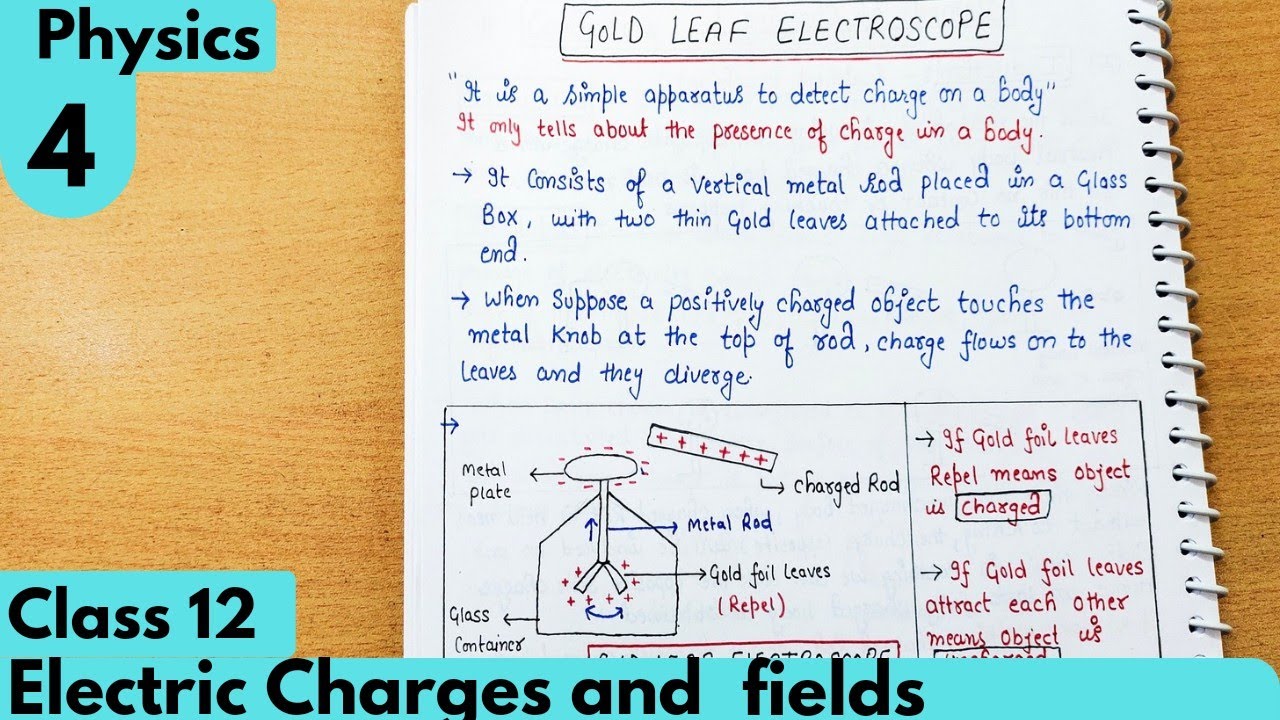 Physics
4
GOLD LEAF ELECTROSCOPE
"It is a simple apparatus to detect charge on a body"
It only tells about the presence of charge in a body.
→ It consists of a vertical metal Rod placed in a Glass
Box, with two thin Gold leaves attached to its bottom
end.
→ When Suppose a positively charged object touches the
metal Knob at the top of rod, charge flows on to the
leaves and they diverge.
→
+ + + + + +
Metal
plate
Charged Rod
Metal Rod
Gold foil leaves
(Repel)
Glass
Container
GOLD LEAF ELECTROSCOPE
→ If Gold foil leaves
Repel means object
is charged
→ If Gold foil leaves
attract each other
means object is
Class 12
Electric Charges and fields